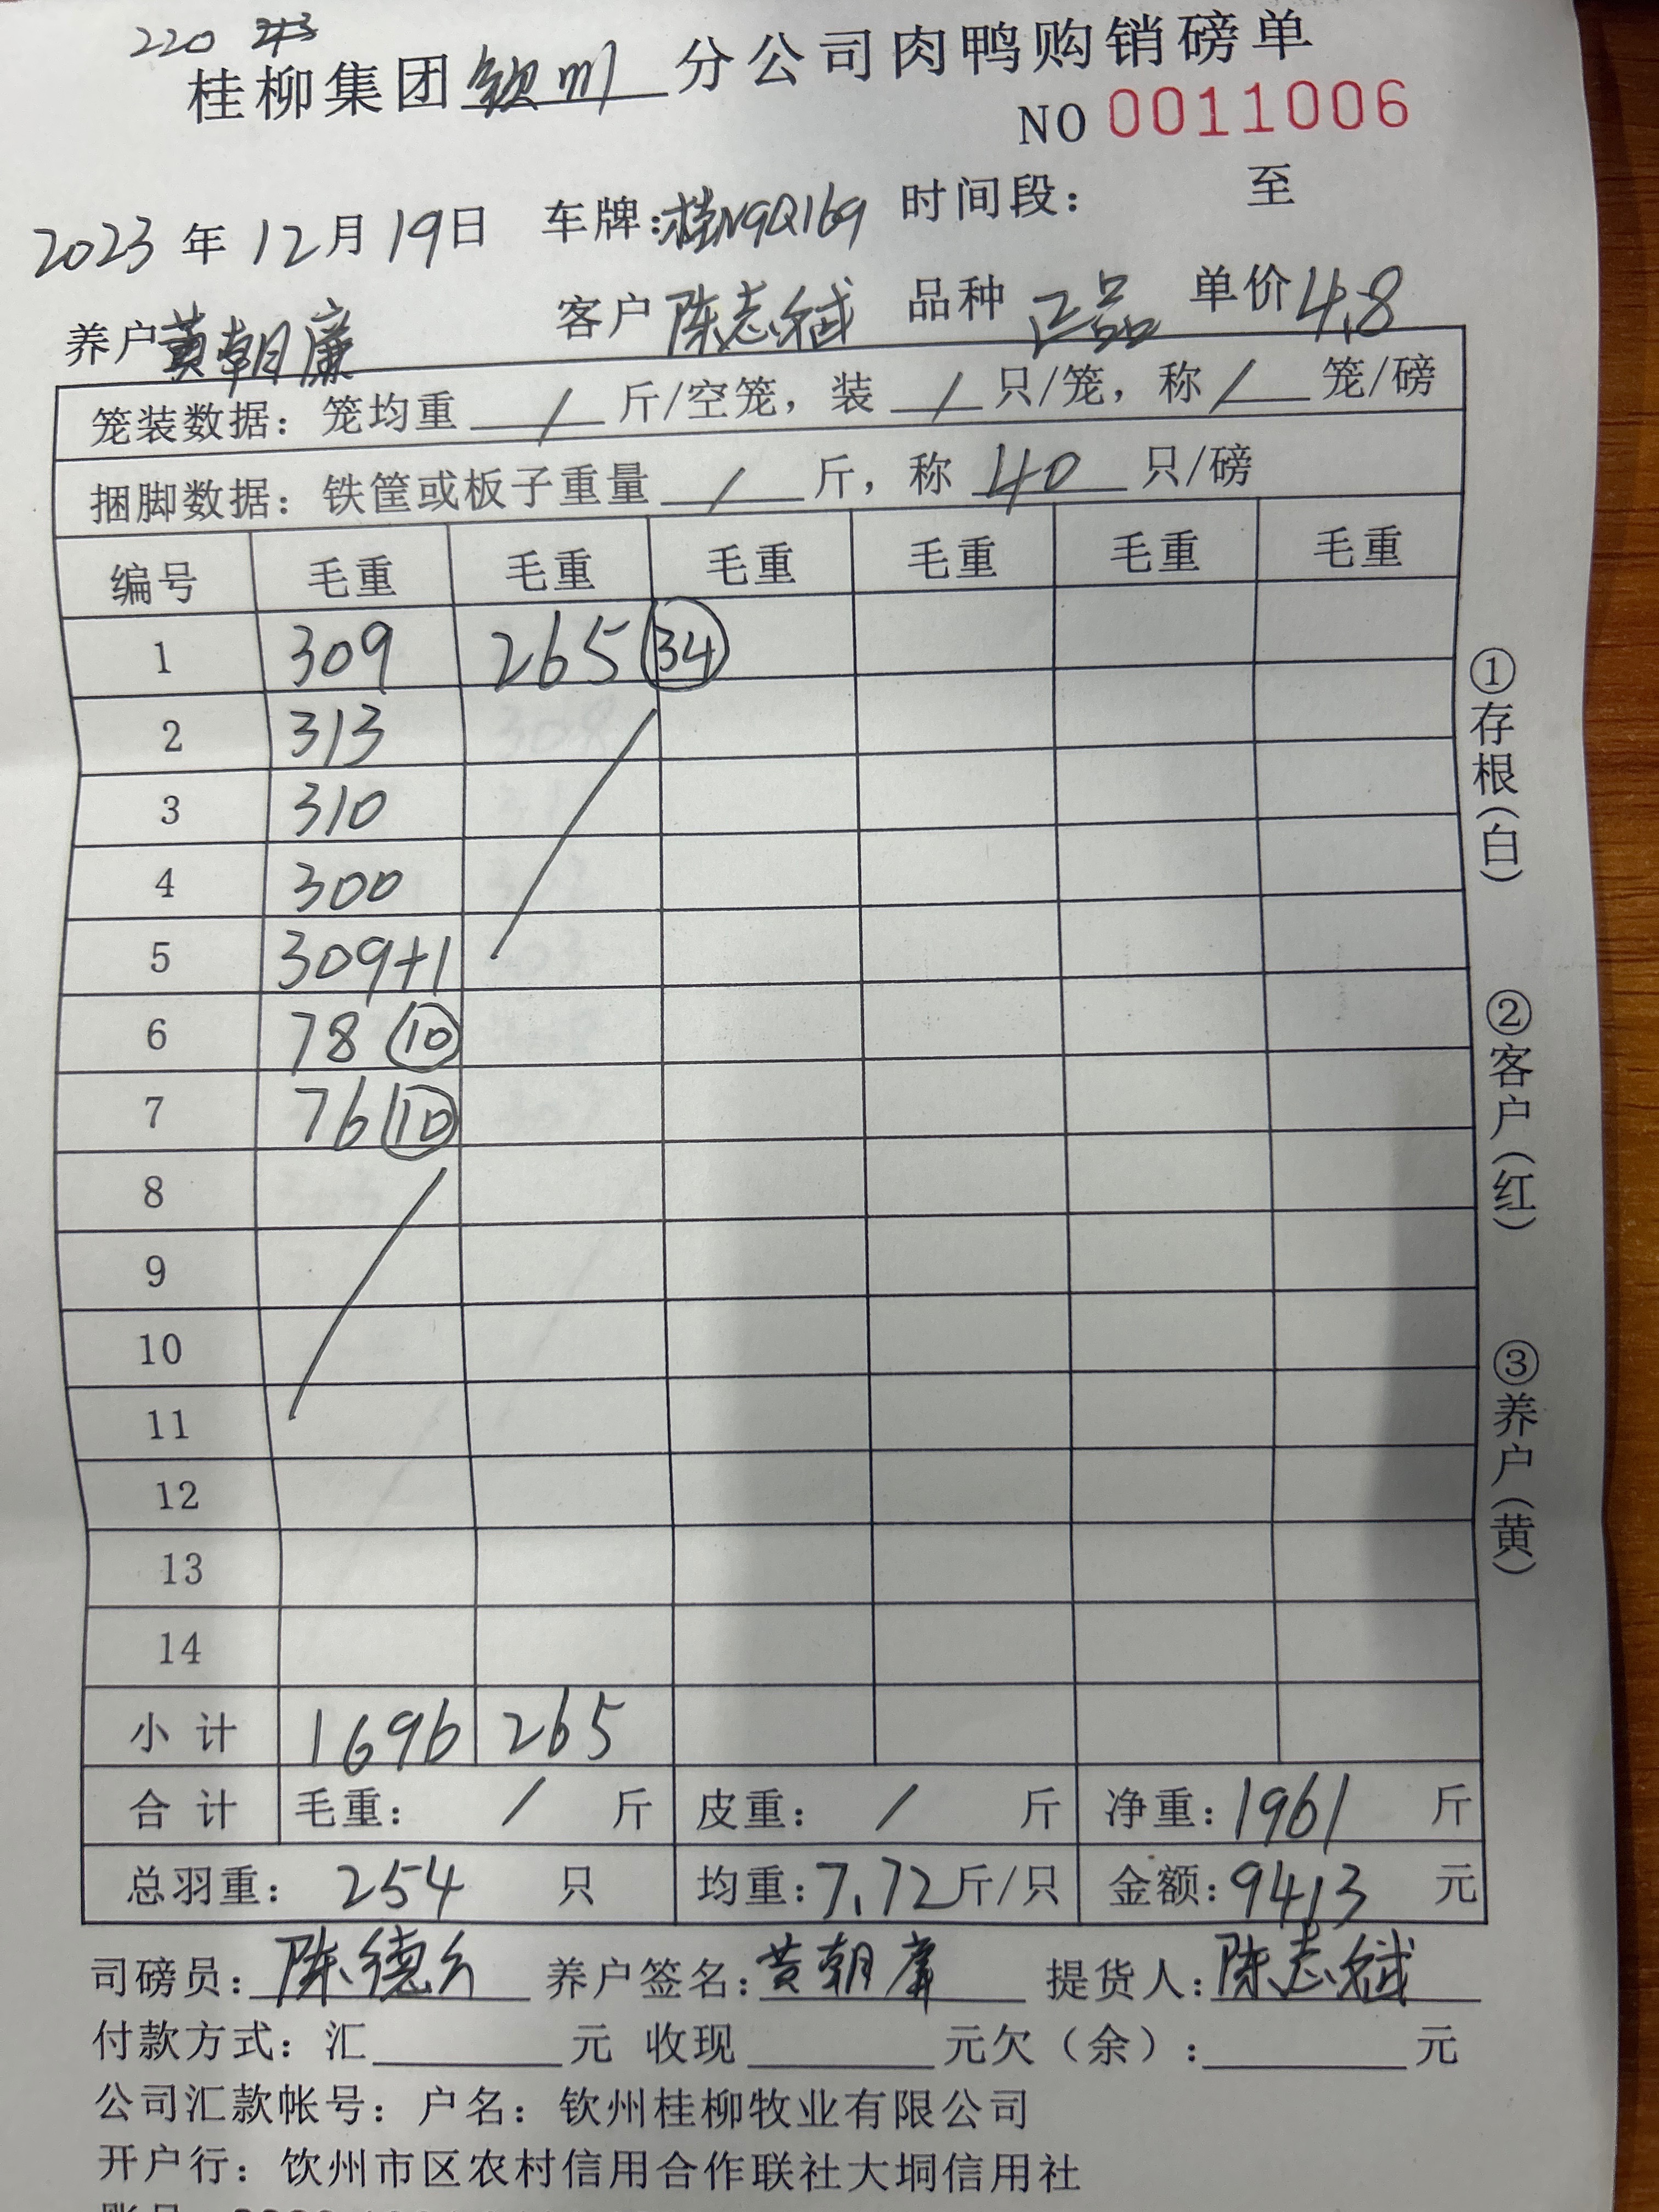 220
桂柳集团钦州分公司肉鸭购销磅单
NO 0011006
2023年12月19日 车牌:桂N9Q169 时间段: 至
养户黄朝廉 客户陈志斌 品种 正品 单价4.8
笼装数据: 笼均重 / 斤/空笼, 装 / 只/笼, 称 / 笼/磅
捆脚数据: 铁筐或板子重量 / 斤, 称 40 只/磅
编号 毛重 毛重 毛重 毛重 毛重 毛重
1 309 265 34
2 313
3 310
4 300
5 309+1
6 78 10
7 76 10
8
9
10
11
12
13
14
小计 1696 265
合计 毛重: / 斤 皮重: / 斤 净重:1961 斤
总羽重: 254 只 均重:7.72斤/只 金额:9413 元
司磅员: 陈德 养户签名:黄朝廉 提货人:陈志斌
付款方式: 汇 元 收现 元欠(余): 元
公司汇款帐号: 户名: 钦州桂柳牧业有限公司
开户行: 钦州市区农村信用合作联社大垌信用社
①存根(白) ②客户(红) ③养户(黄)